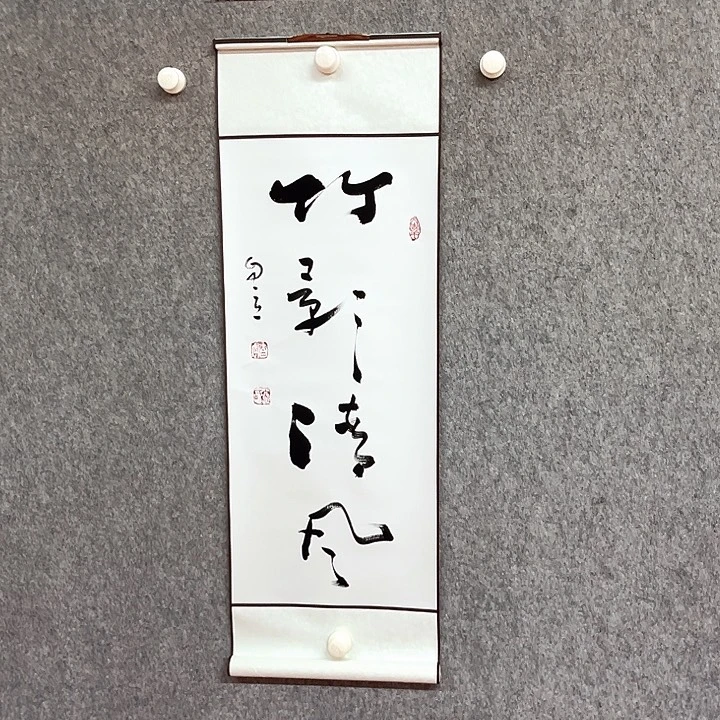 竹影清风